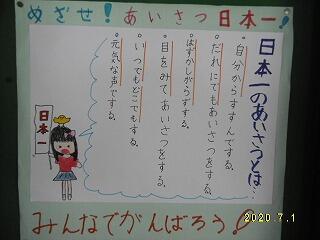 めざせ！あいさつ日本一！
日本一のあいさつとは…
・自分からすすんでする。
・だれにでもあいさつをする。
・はずかしがらずする。
・目をみてあいさつをする。
・いつでもどこでもする。
・元気な声でする。
日本一
みんなでがんばろう！
2020.7.1